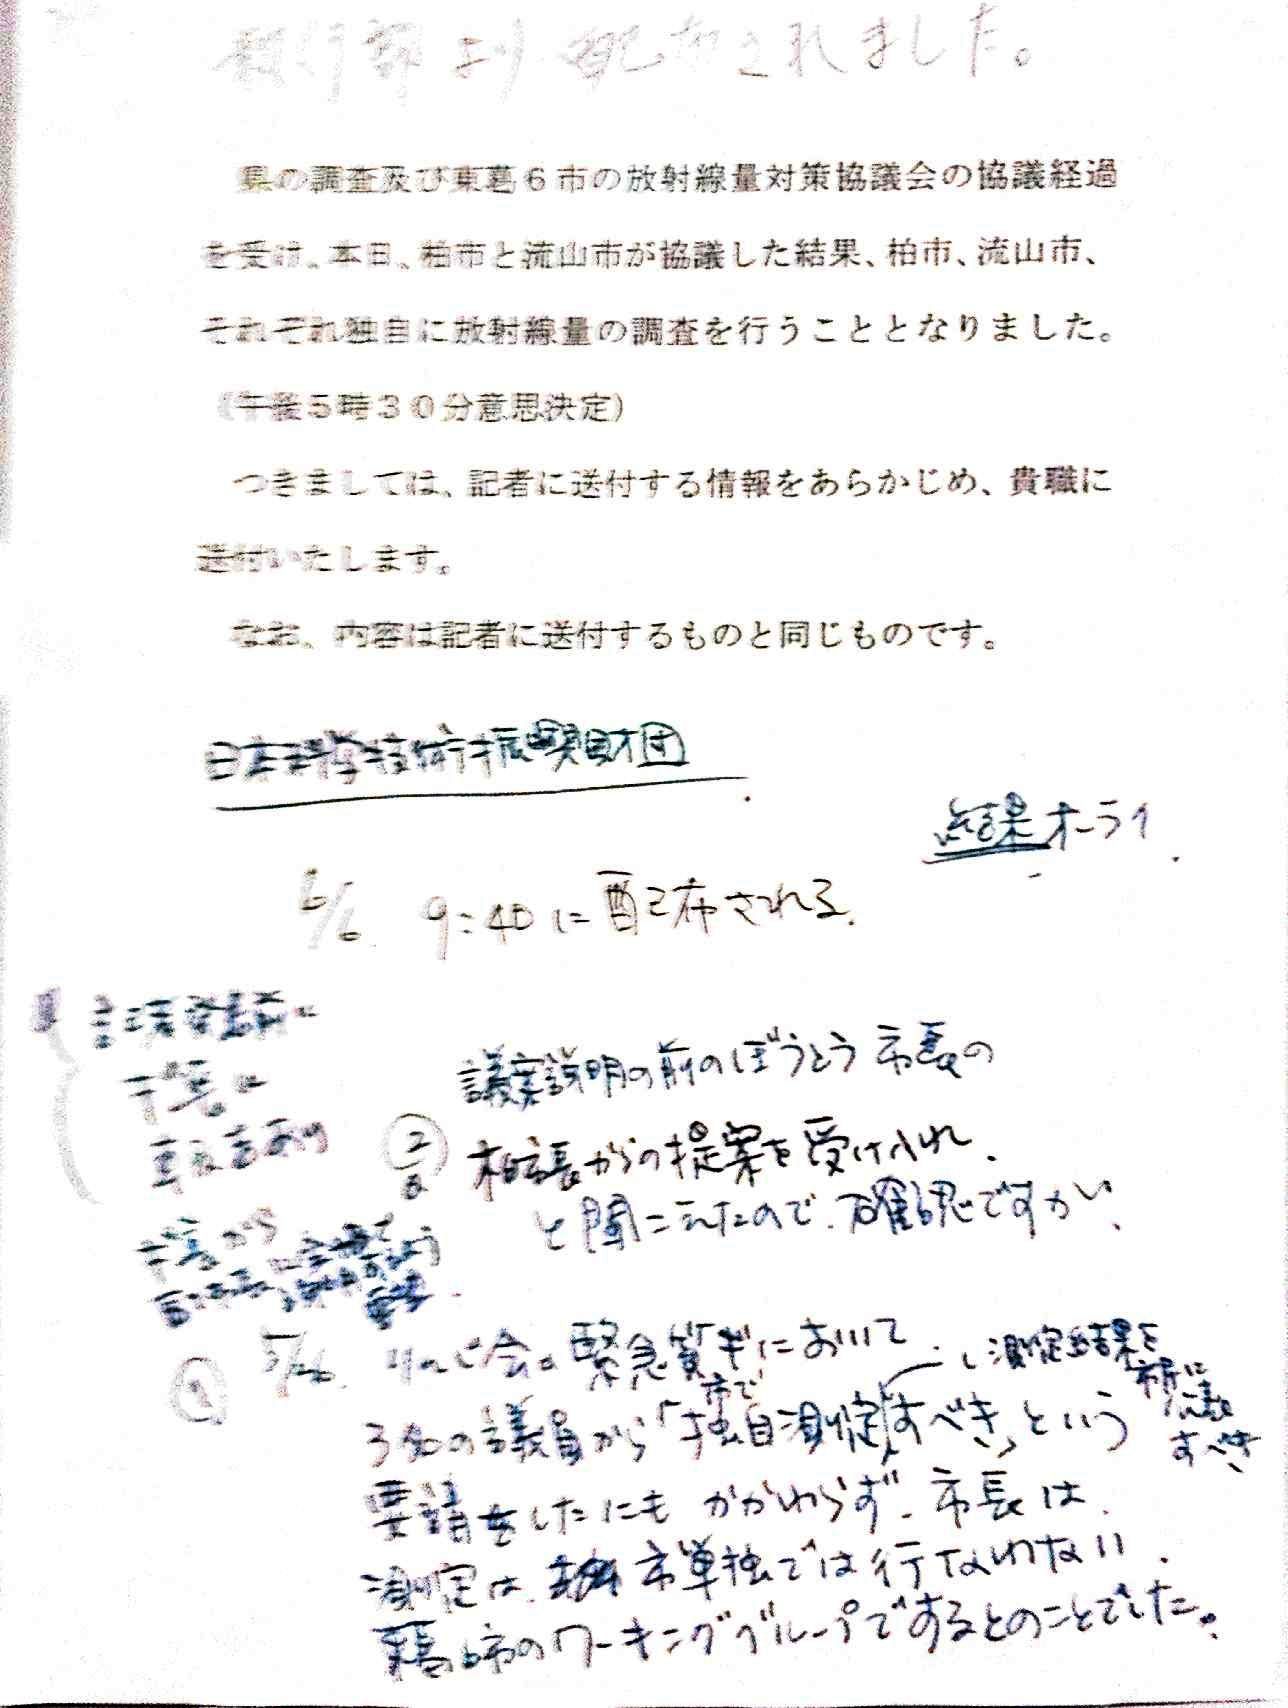 執行部より配布されました。
県の調査及び東葛6市の放射線量対策協議会の協議経過
を受け、本日、柏市と流山市が協議した結果、柏市、流山市、
それぞれ独自に放射線量の調査を行うこととなりました。
(午後5時30分意思決定)
つきましては、記者に送付する情報をあらかじめ、貴職に
送付いたします。
なお、内容は記者に送付するものと同じものです。
日本科学技術振興財団
結果オーライ.
6/6 9:40に配布される.
記者発表前に
市長に
議案説明の前のぼうとう 市長の
柏市長からの提案を受け入れ.
と聞こえたので.確認ですが、
① 5/26. りんじ会の緊急質ギにおいて
3名の議員から「市で独自測定すべき」という
し測定結果を
市民に
公表
すべき
要請をしたにもかかわらず.市長は.
測定は. 市単独では行なわない.
東葛6市のワーキンググループでするとのことでした。